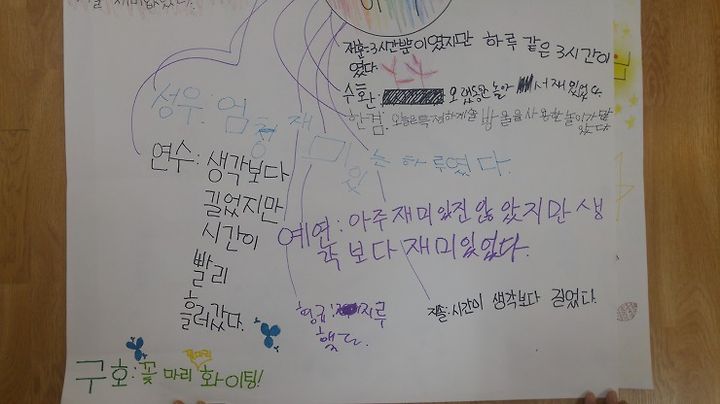 재미있었다.
지훈:3시간뿐이였지만 하루 같은 3시간이
였다.
수환: 오랫동안 놀아 서 재밌었다.
한결. 오늘은 특별하게
방울을 사용한 놀이가
성우:엄청 재미있는 하루였다.
연수:생각보다
길었지만
시간이
빨리
흘러갔다.
예연:아주재미있진않았지만생
각보다재미있었다.
지루
했다.
시간이 생각보다 길었다.
꽃마리
구호:꽃 마리 화이팅!